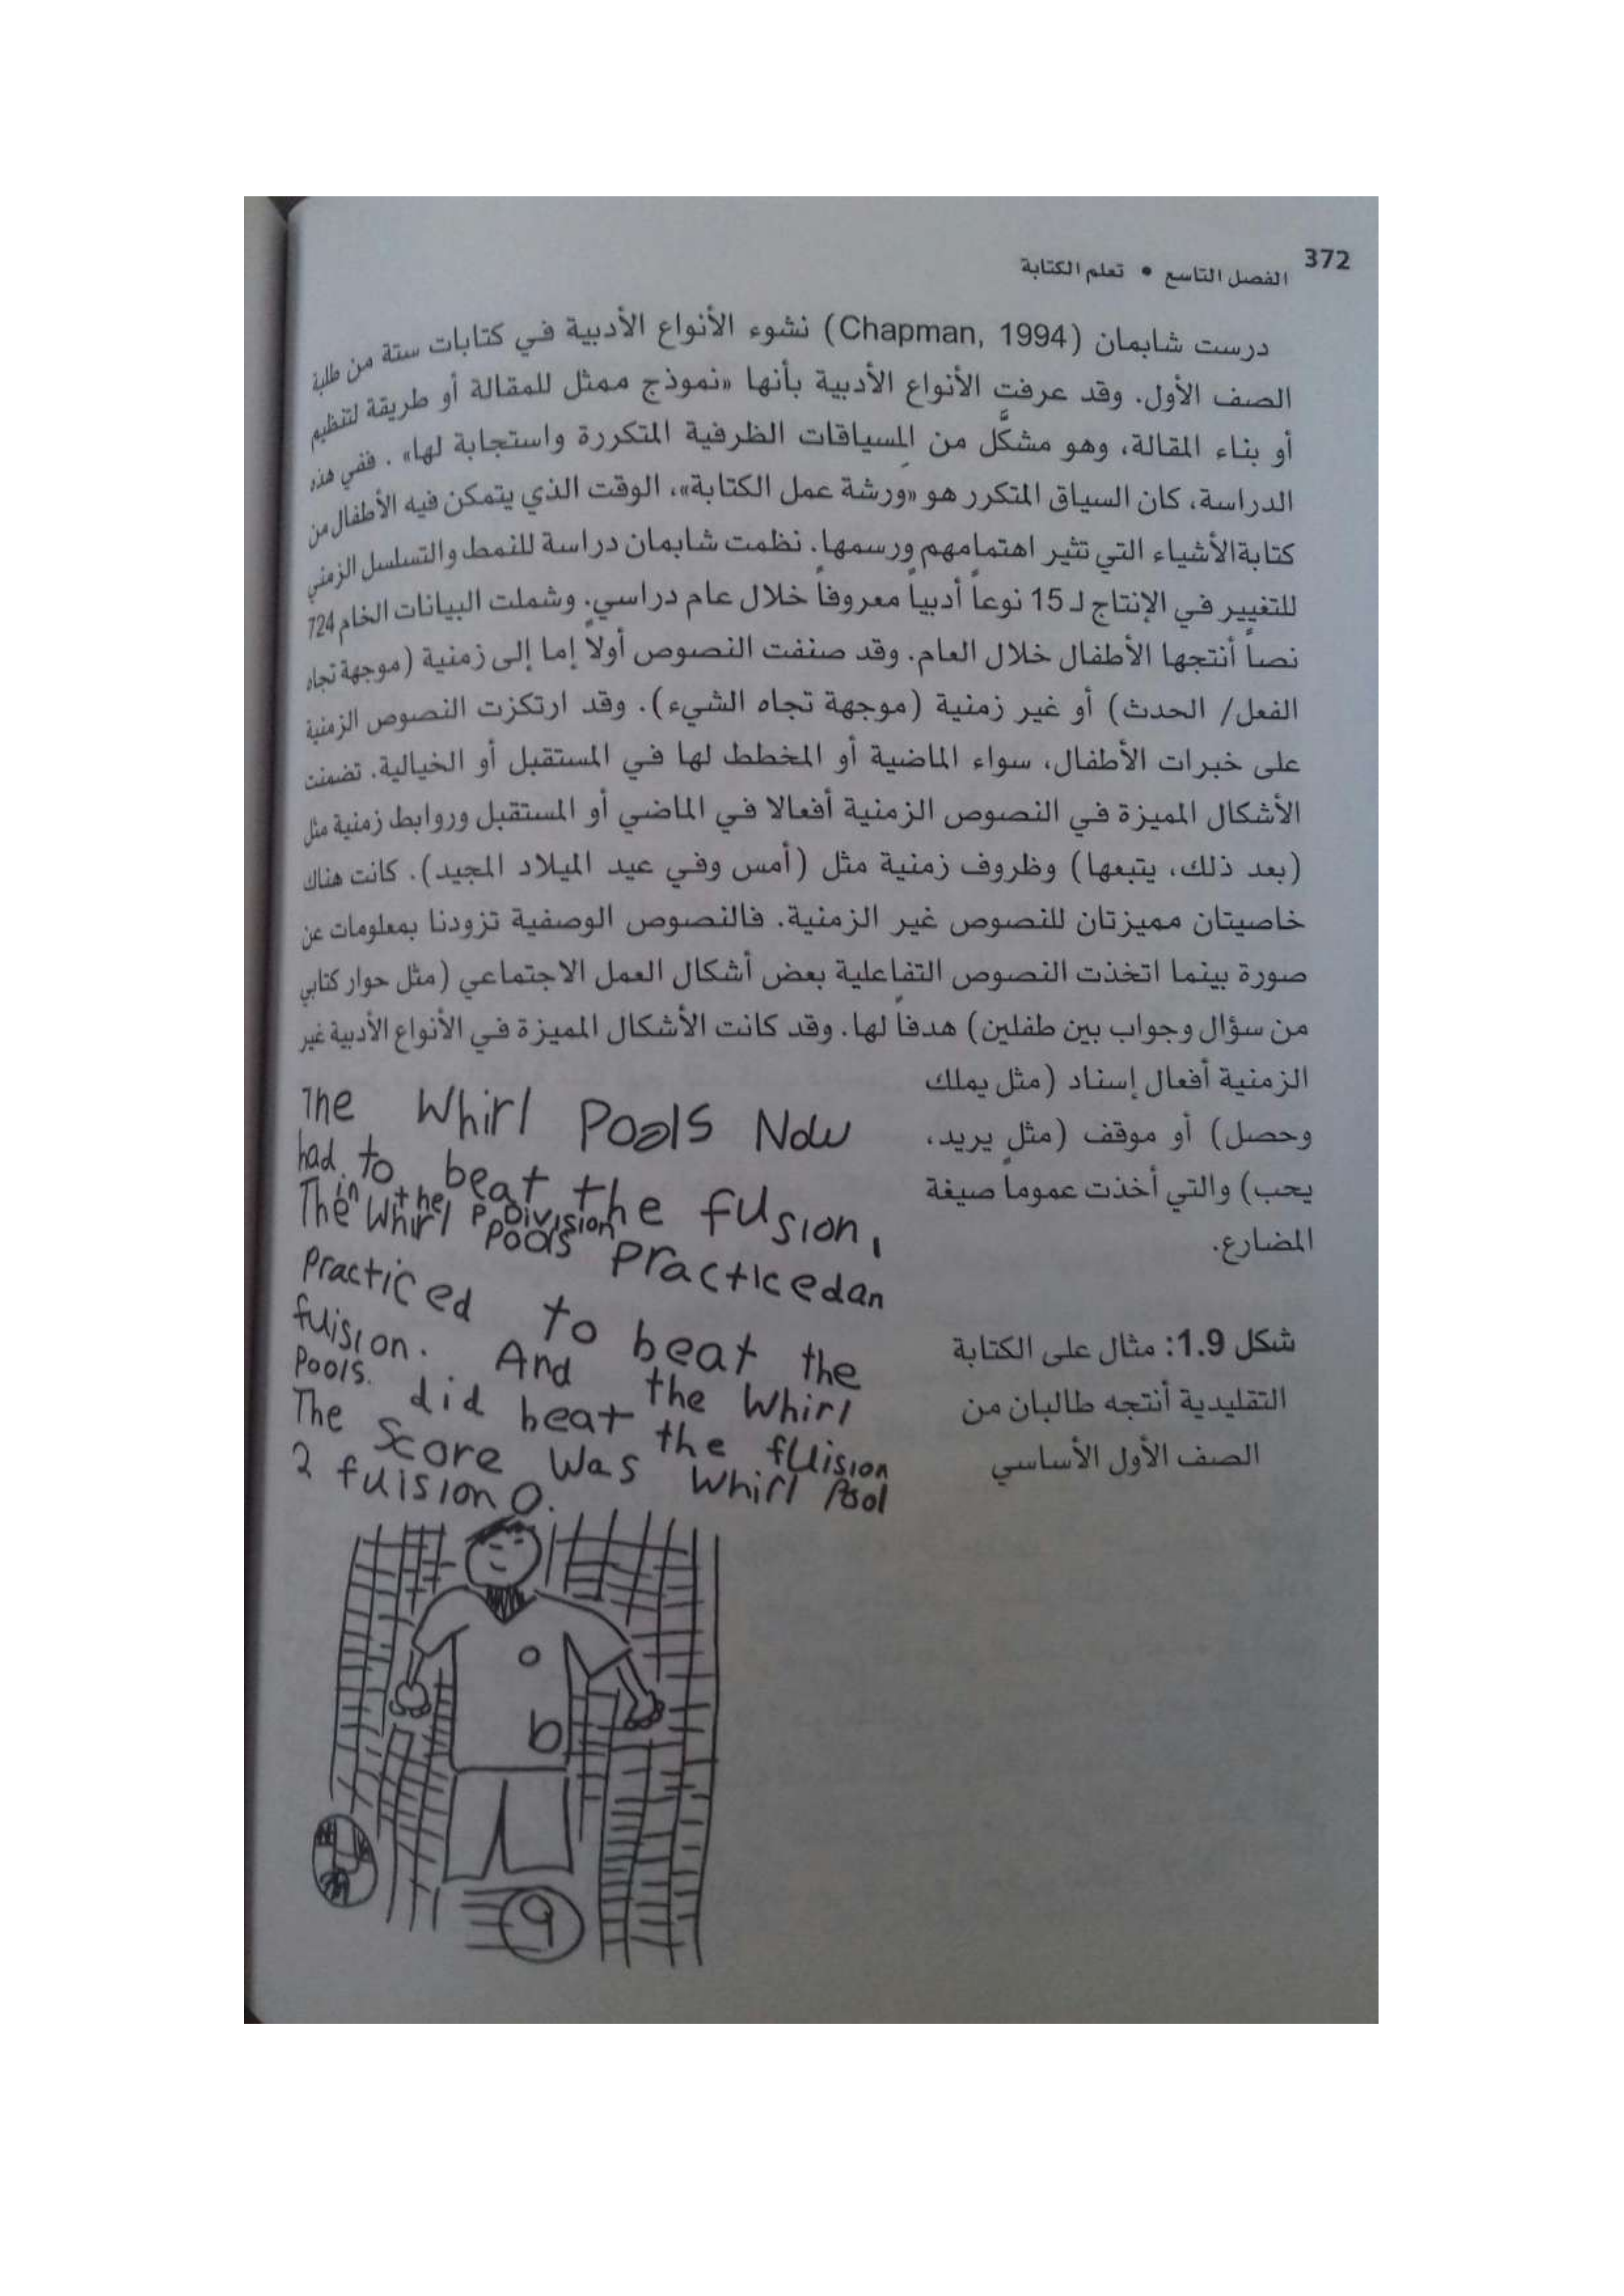 372
الفصل التاسع • تعلم الكتابة
درست شابمان (Chapman, 1994) نشوء الأنواع الأدبية في كتابات ستة من طلبة
الصف الأول. وقد عرفت الأنواع الأدبية بأنها «نموذج ممثل للمقالة أو طريقة لتنظيم
أو بناء المقالة، وهو مشكَّل من السياقات الظرفية المتكررة واستجابة لها». ففي هذه
الدراسة، كان السياق المتكرر هو «ورشة عمل الكتابة»، الوقت الذي يتمكن فيه الأطفال من
كتابة الأشياء التي تثير اهتمامهم ورسمها. نظمت شابمان دراسة للنمط والتسلسل الزمني
للتغيير في الإنتاج لـ 15 نوعاً أدبياً معروفاً خلال عام دراسي. وشملت البيانات الخام 724
نصاً أنتجها الأطفال خلال العام. وقد صنفت النصوص أولاً إما إلى زمنية (موجهة تجاه
الفعل/ الحدث) أو غير زمنية (موجهة تجاه الشيء). وقد ارتكزت النصوص الزمنية
على خبرات الأطفال، سواء الماضية أو المخطط لها في المستقبل أو الخيالية. تضمنت
الأشكال المميزة في النصوص الزمنية أفعالا في الماضي أو المستقبل وروابط زمنية مثل
(بعد ذلك، يتبعها) وظروف زمنية مثل (أمس وفي عيد الميلاد المجيد). كانت هناك
خاصيتان مميزتان للنصوص غير الزمنية. فالنصوص الوصفية تزودنا بمعلومات عن
صورة بينما اتخذت النصوص التفاعلية بعض أشكال العمل الاجتماعي (مثل حوار كتابي
من سؤال وجواب بين طفلين) هدفاً لها. وقد كانت الأشكال المميزة في الأنواع الأدبية غير
الزمنية أفعال إسناد (مثل يملك
وحصل) أو موقف (مثل يريد،
يحب) والتي أخذت عموماً صيغة
المضارع.
شكل 1.9: مثال على الكتابة
التقليدية أنتجه طالبان من
الصف الأول الأساسي
The Whirl Pools Now
had to beat the fusion,
in the Division
The Whirl Pools Practicedan
Practiced to beat the
fuision. And the Whirl
Pools. did beat the fuision
The Score Was Whirl Pool
2 fuision 0.
b
9